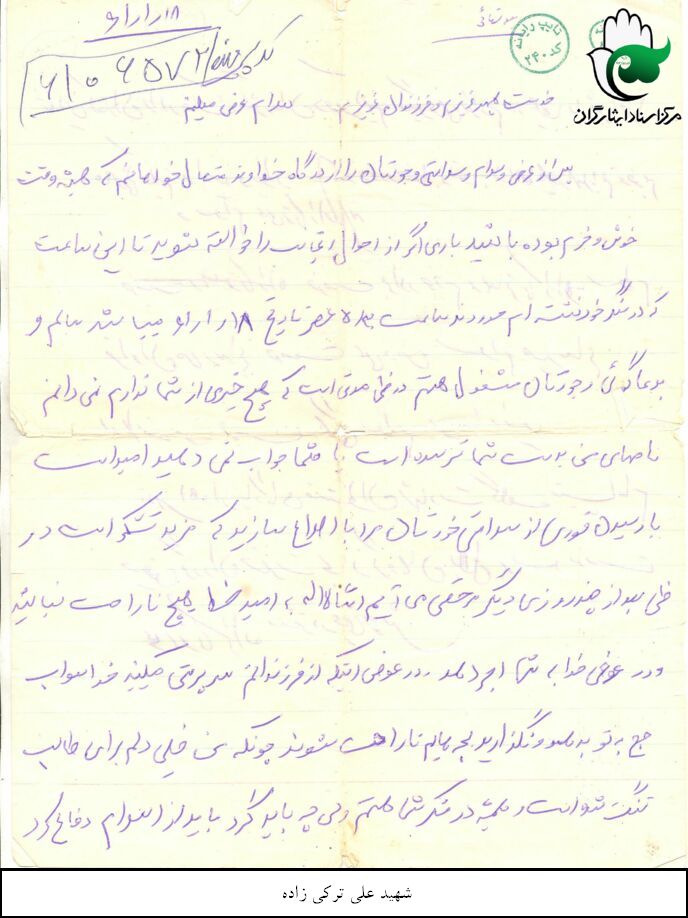 ۶۱/۱/۱۸
کد پستی ۶۱۰۶۵۷۲
تایپ رایانه
کد ۲۴۰
مرکز اسناد ایثارگران
خدمت همسر عزیزم و فرزندان عزیزم سلام عرض میکنم
پس از عرض سلام و سلامتی وجودتان را از درگاه خداوند متعال خواهانم که همیشه وقت
خوش و خرم بوده باشید باری اگر از احوال اینجانب را خواسته باشید تا این ساعت
که در سنگر خود نشسته ام ساعت عصر تاریخ میباشد سالم و
بدعاگوئی وجودتان مشغول هستم در ضمن مدتی است که هیچ خبری از شما ندارم نمی دانم
نامهای من بدست شما نرسیده است یا شما جواب نمی دهید امیدوارست
با رسیدن فوری از سلامتی خودتان مرا با اطلاع سازید که مزید تشکر است در
ضمن بعد از چند روزی دیگر مرخصی می آیم انشاءالله به امید خدا هیچ ناراحت نباشید
و در عوض خدا به شما اجر دهد در عوض اینکه از فرزندانم سرپرستی میکنید خدا ثواب
حج به تو بدهد و نگذارید بچه هایم ناراحت شوند چونکه من خیلی دلم برای
تنگ شده است و همیشه در فکر شما هستم ولی چه باید کرد باید از اسلام دفاع کرد
شهید علی ترکی زاده